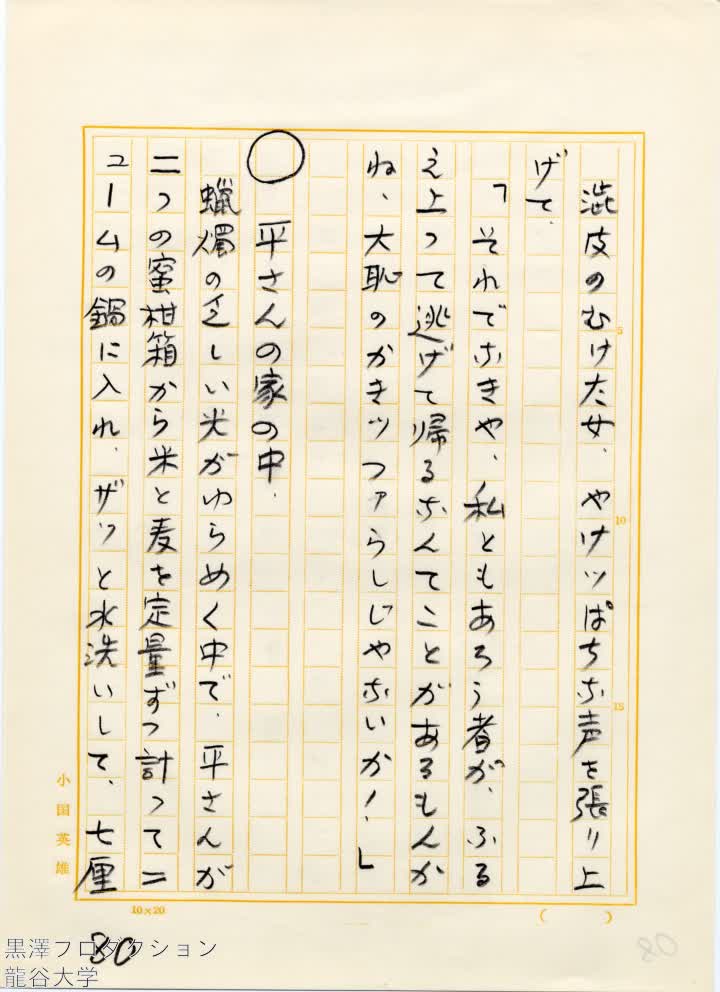 澁皮のむけた女、やけッぱちな声を張り上
げて、
「それでなきや、私ともあろう者が、ふる
え上つて逃げて帰るなんてことがあるもんか
ね、大恥のかきッファらしじやないか！」
○ 平さんの家の中、
蠟燭の乏しい光がゆらめく中で、平さんが
二つの蜜柑箱から米と麦を定量ずつ計つてニ
ュームの鍋に入れ、ザッと水洗いして、七厘
5
10
15
小国英雄
10×20
( )
80
黒澤プロダクション
龍谷大学